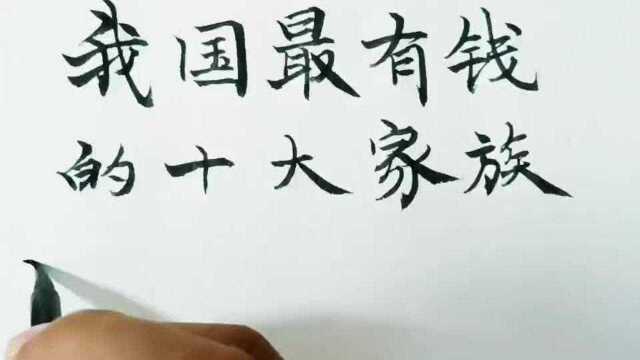 我国最有钱
的十大家族